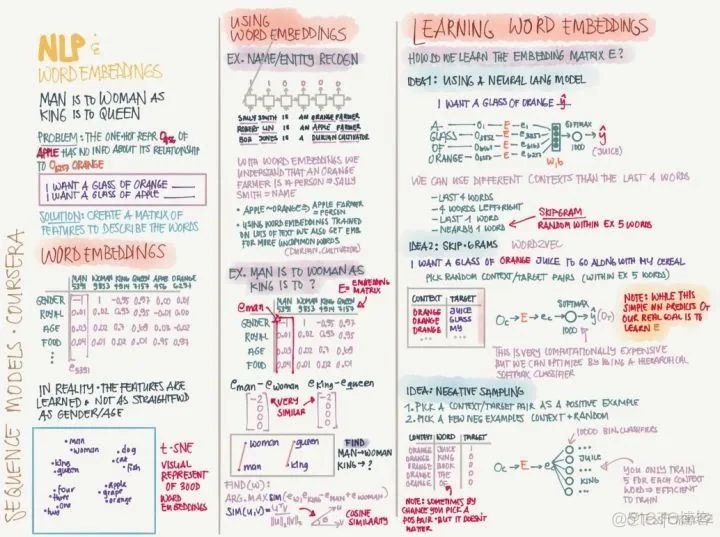 SEQUENCE MODELS · COURSERA
NLP &
WORD EMBEDDINGS
MAN IS TO WOMAN AS
KING IS TO QUEEN
PROBLEM: THE ONE-HOT REPR
APPLE HAS NO INFO ABOUT ITS RELATIONSHIP
TO O6257 ORANGE
I WANT A GLASS OF ORANGE ____
I WANT A GLASS OF APPLE ____
SOLUTION: CREATE A MATRIX OF
FEATURES TO DESCRIBE THE WORDS
WORD EMBEDDINGS
MAN WOMAN KING QUEEN APPLE ORANGE
5391 9853 4914 7157 456 6257
GENDER -1 1 -0.95 0.97 0.00 0.01
ROYAL 0.01 0.02 0.93 0.95 -0.01 0.00
AGE 0.03 0.02 0.7 0.69 0.03 -0.02
FOOD 0.04 0.01 0.02 0.01 0.95 0.97
e5391
IN REALITY · THE FEATURES ARE
LEARNED & NOT AS STRAIGHTFWD
AS GENDER/AGE
man
woman
dog
king
cat
queen
fish
four
apple
three
grape
one
orange
two
t-SNE
VISUAL
REPRESENT
OF 300D
WORD
EMBEDDINGS
USING
WORD EMBEDDINGS
EX. NAME/ENTITY RECOGN
1 1 0 0 0 0
SALLY SMITH IS AN ORANGE FARMER
ROBERT LIN IS AN APPLE FARMER
BOB JONES IS A DURIAN CULTIVATOR
WITH WORD EMBEDDINGS WE
UNDERSTAND THAT AN ORANGE
FARMER IS A PERSON ⇒ SALLY
SMITH = NAME
• APPLE ~ ORANGE ⇒ APPLE FARMER
= PERSON
• USING WORD EMBEDDINGS TRAINED
ON LOTS OF TEXT WE ALSO GET EMB
FOR MORE UNCOMMON WORDS
(DURIAN, CULTIVATOR)
EX. MAN IS TO WOMAN AS
KING IS TO ?
E = EMBEDDING
MATRIX
eman
MAN WOMAN KING QUEEN
5391 9853 4914 7157
GENDER -1 1 -0.95 0.97
ROYAL 0.01 0.02 0.93 0.95
AGE 0.03 0.02 0.7 0.69
FOOD 0.04 0.01 0.02 0.01
eman - ewoman eking - equeen
-2 -2
0 VERY 0
0 SIMILAR 0
0 0
woman queen
man king
FIND
MAN→WOMAN
KING→?
FIND(w):
ARG.MAX SIM(ew, eking - eman + ewoman)
SIM(u,v) = uTv / ||u||2||v||2
COSINE
SIMILARITY
LEARNING WORD EMBEDDINGS
HOW DO WE LEARN THE EMBEDDING MATRIX E?
IDEA1: USING A NEURAL LANG MODEL
I WANT A GLASS OF ORANGE ŷ
A — O1 → E → e1
GLASS E
OF E
ORANGE E
SOFTMAX
1000
ŷ
(JUICE)
W,b
WE CAN USE DIFFERENT CONTEXTS THAN THE LAST 4 WORDS
- LAST 4 WORDS
- 4 WORDS LEFT/RIGHT
- LAST 1 WORD
- NEARBY 1 WORD
SKIPGRAM
RANDOM WITHIN EX 5 WORDS
IDEA2: SKIP-GRAMS WORD2VEC
I WANT A GLASS OF ORANGE JUICE TO GO ALONG WITH MY CEREAL
PICK RANDOM CONTEXT/TARGET PAIRS (WITHIN EX 5 WORDS)
CONTEXT TARGET
ORANGE JUICE
ORANGE GLASS
ORANGE MY
...
Oc → E → ec
SOFTMAX
1000
ŷ (OT)
NOTE: WHILE THIS
SIMPLE NN PREDICTS OT
OUR REAL GOAL IS TO
LEARN E
THIS IS VERY COMPUTATIONALLY EXPENSIVE
BUT WE CAN OPTIMIZE BY USING A HIERARCHICAL
SOFTMAX CLASSIFIER
IDEA: NEGATIVE SAMPLING
1. PICK A CONTEXT/TARGET PAIR AS A POSITIVE EXAMPLE
2. PICK A FEW NEG EXAMPLES CONTEXT + RANDOM
CONTEXT WORD TARGET
ORANGE JUICE 1
ORANGE KING 0
ORANGE BOOK 0
ORANGE THE 0
ORANGE OF 0
NOTE: SOMETIMES BY
CHANCE YOU PICK A
POS PAIR · BUT IT DOESN'T
MATTER
Oc → E → e
10000 BIN. CLASSIFIERS
JUICE
KING
YOU ONLY TRAIN
5 FOR EACH CONTEXT
WORD ⇒ EFFICIENT
TO TRAIN